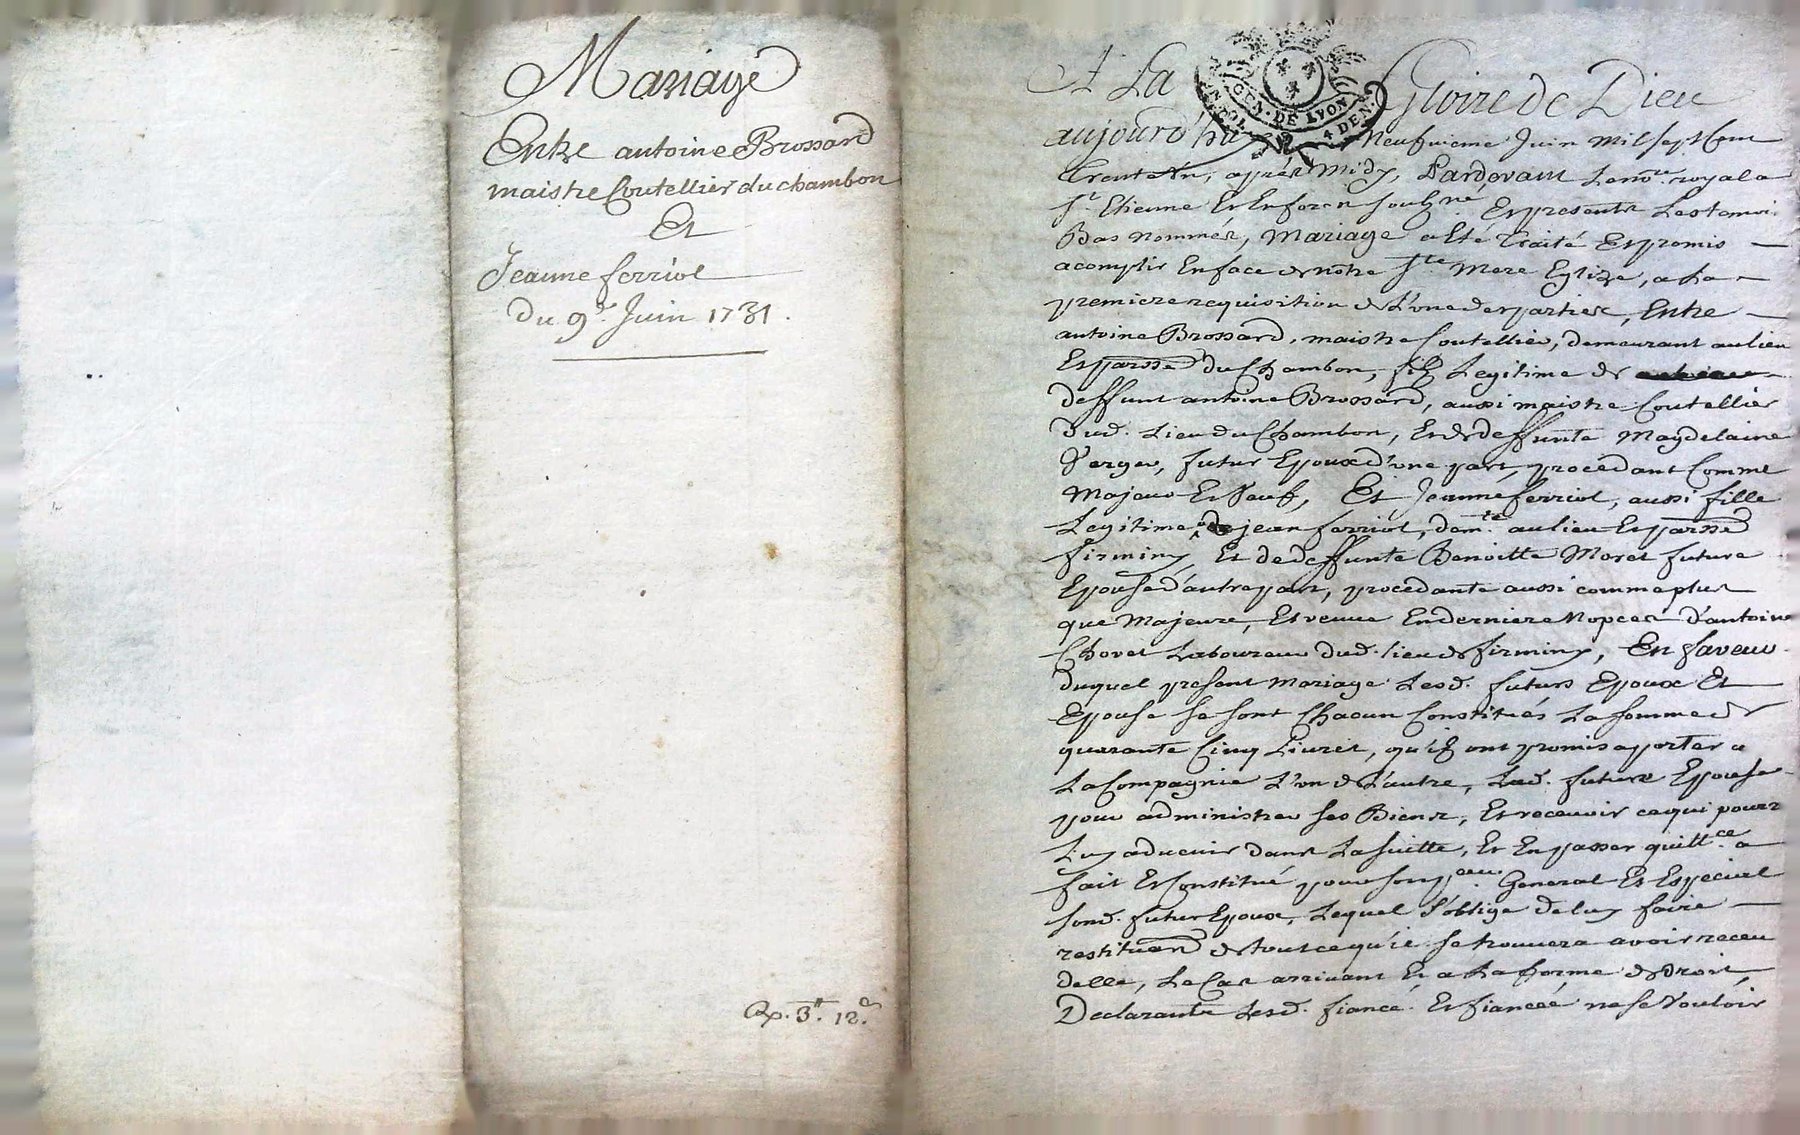 Mariage
Entre antoine Brossard
maistre Coutellier du chambon
Et
Jeanne ferriol
Du 9e. Juin 1731.
Exp. 3tt. 12s.
A La Gloire de Dieu
GEN. DE LYON
4 DEN.
aujourd'huy Neufvieme Juin Mil sept Cent
trente Un, après Midy, Pardevant Le nore. royal a
St. Etienne Et En forez soubzné, Et presents Les temoi.
Bas nommés, Mariage a Eté Traité Et promis
acomplir En face de notre Ste Mere Eglize, a La
premiere requisition de L'une des parties, Entre
antoine Brossard, maistre Coutellier, demeurant au lieu
Et parsse du Chambon, filz Legitime de
deffunt antoine Brossard, aussi maistre Coutellier
dud. Lieu du Chambon, Et de deffunte Magdelaine
Verger, futur Epoux d'une part, procedant Comme
Majeur Et Veuf, Et Jeanne ferriol, aussi fille
Legitime de jean ferriol, demt. au lieu Et parsse
firminy, Et de deffunte Benoitte Moret future
Epouse d'autre part, procedante aussi comme plus
que Majeure, Et veuve En derniere Nopces d'antoine
Chovet Laboureur dud. lieu de firminy, En faveur
duquel present Mariage Lesd. futurs Epoux Et
Epouse se sont Chacun Constitués La somme de
quarante Cinq Livres, qu'ilz ont promis aporter a
La Compagnie L'un de L'autre, Lad. future Epouse
pour administrer ses Biens, Et recevoir ce qui pourra
Luy advenir dans La suitte, Et En passer quittce. a
fait Et Constitué pour son peur. General Et Especial
sond. futur Epoux, Lequel s'oblige de luy faire
restituer de tout ce qu'il se trouvera avoir receu
delle, Le Cas arrivant Et a La forme de droit,
Declarants Lesd. fiancé. Et fiancée ne se Vouloir